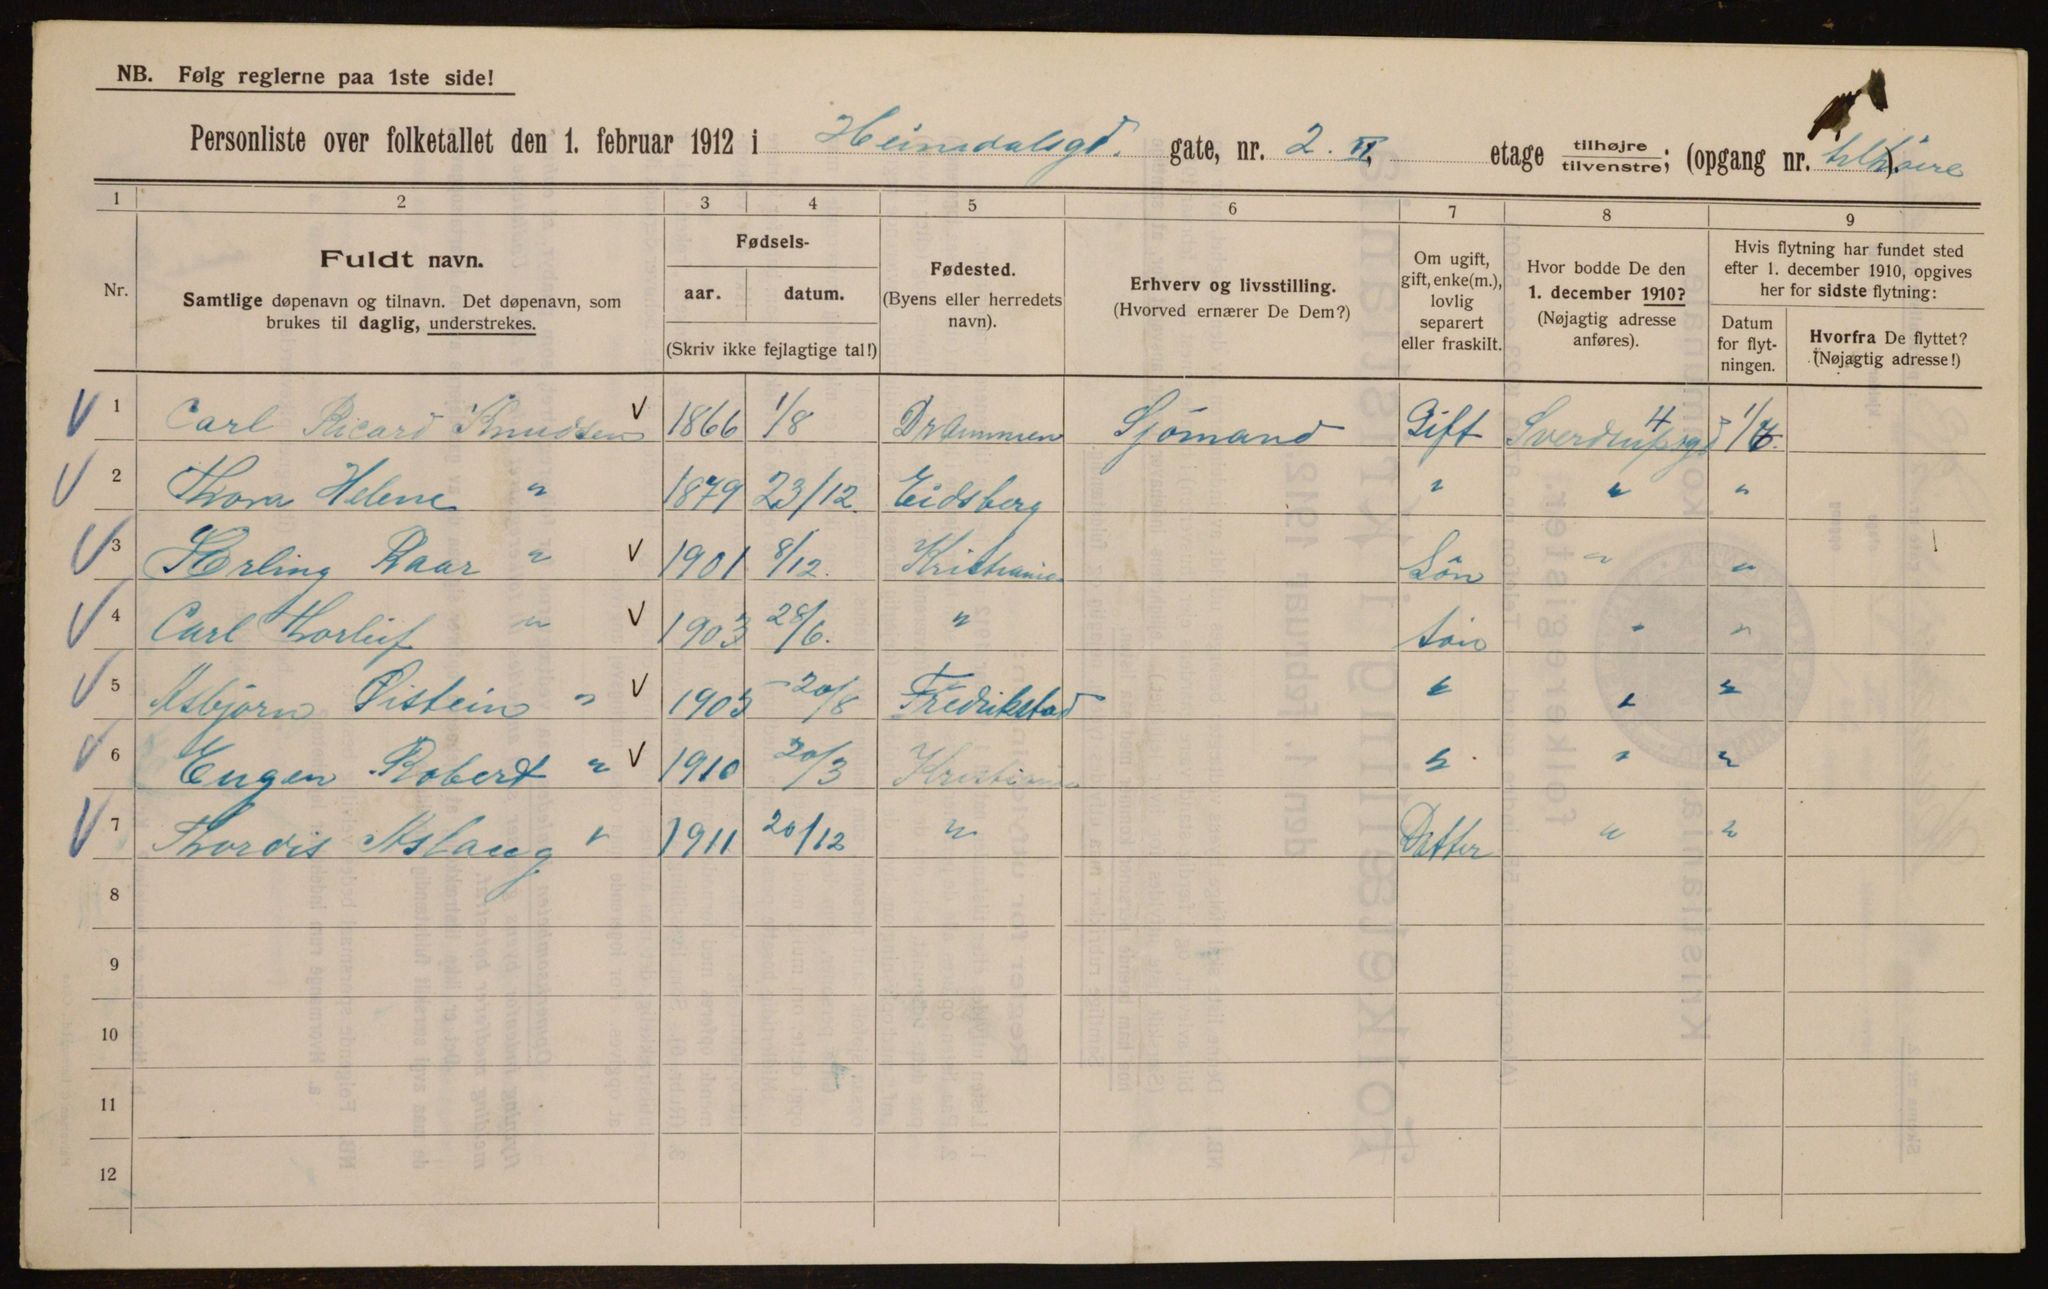 NB. Følg reglerne paa 1ste side!
Personliste over folketallet den 1. februar 1912 i Heimdalsgd. gate, nr. 2. VI, etage tilhøjre/tilvenstre; (opgang nr. tilhöire).
1 2 3 4 5 6 7 8 9
Nr. Fuldt navn. Samtlige døpenavn og tilnavn. Det døpenavn, som brukes til daglig, understrekes.
Fødsels- aar. datum. (Skriv ikke fejlagtige tal!)
Fødested. (Byens eller herredets navn).
Erhverv og livsstilling. (Hvorved ernærer De Dem?)
Om ugift, gift, enke(m.), lovlig separert eller fraskilt.
Hvor bodde De den 1. december 1910? (Nøjagtig adresse anføres).
Hvis flytning har fundet sted efter 1. december 1910, opgives her for sidste flytning:
Datum for flyt-ningen. Hvorfra De flyttet? (Nøjagtig adresse!)
1 Carl Ricard Knudsen 1866 1/8 Drammen Sjömand Gift Sverdrupsgd 4
2 Thora Helene " 1879 23/12. Eidsberg " " "
3 Erling Roar " 1901 8/12. Kristiania Sön " "
4 Carl Thorleif " 1903 28/6. " Sön " "
5 Asbjørn Øistein " 1905 20/8 Fredrikstad " " "
6 Eugen Robert " 1910 20/3 Kristiania " " "
7 Thordis Aslaug " 1911 20/12 " Datter " "
8
9
10
11
12